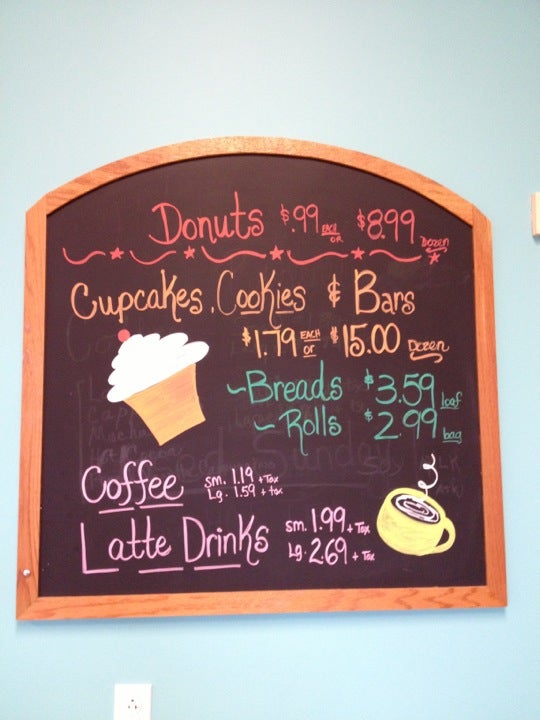 Donuts $.99 EACH OR $8.99 DOZEN
Cupcakes, Cookies & Bars
$1.79 EACH or $15.00 Dozen
~Breads $3.59 loaf
~Rolls $2.99 bag
Coffee sm. 1.19 + Tax
Lg. 1.59 + tax
Latte Drinks sm. 1.99 + Tax
Lg. 2.69 + Tax